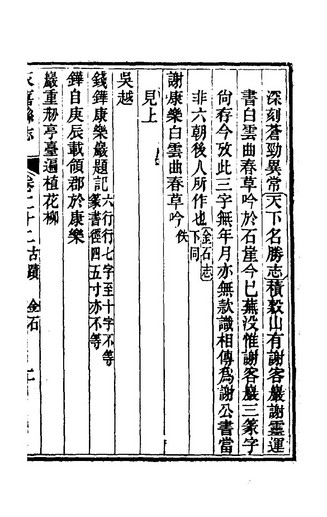 深刻蒼勁異常天下名勝志積穀山有謝客巖謝靈運
書白雲曲春草吟於石崖今已蕪没惟謝客巖三篆字
尙存今攷此三字無年月亦無款識相傳爲謝公書當
非六朝後人所作也金石志下同
謝康樂白雲曲春草吟佚
見上
吳越
錢鏵康樂巖題記六行行七字至十字不等篆書徑四五寸亦不等
鏵自庚辰載領郡於康樂
巖重剏亭臺遍植花柳
永嘉縣志
卷二十二古蹟 金石
二